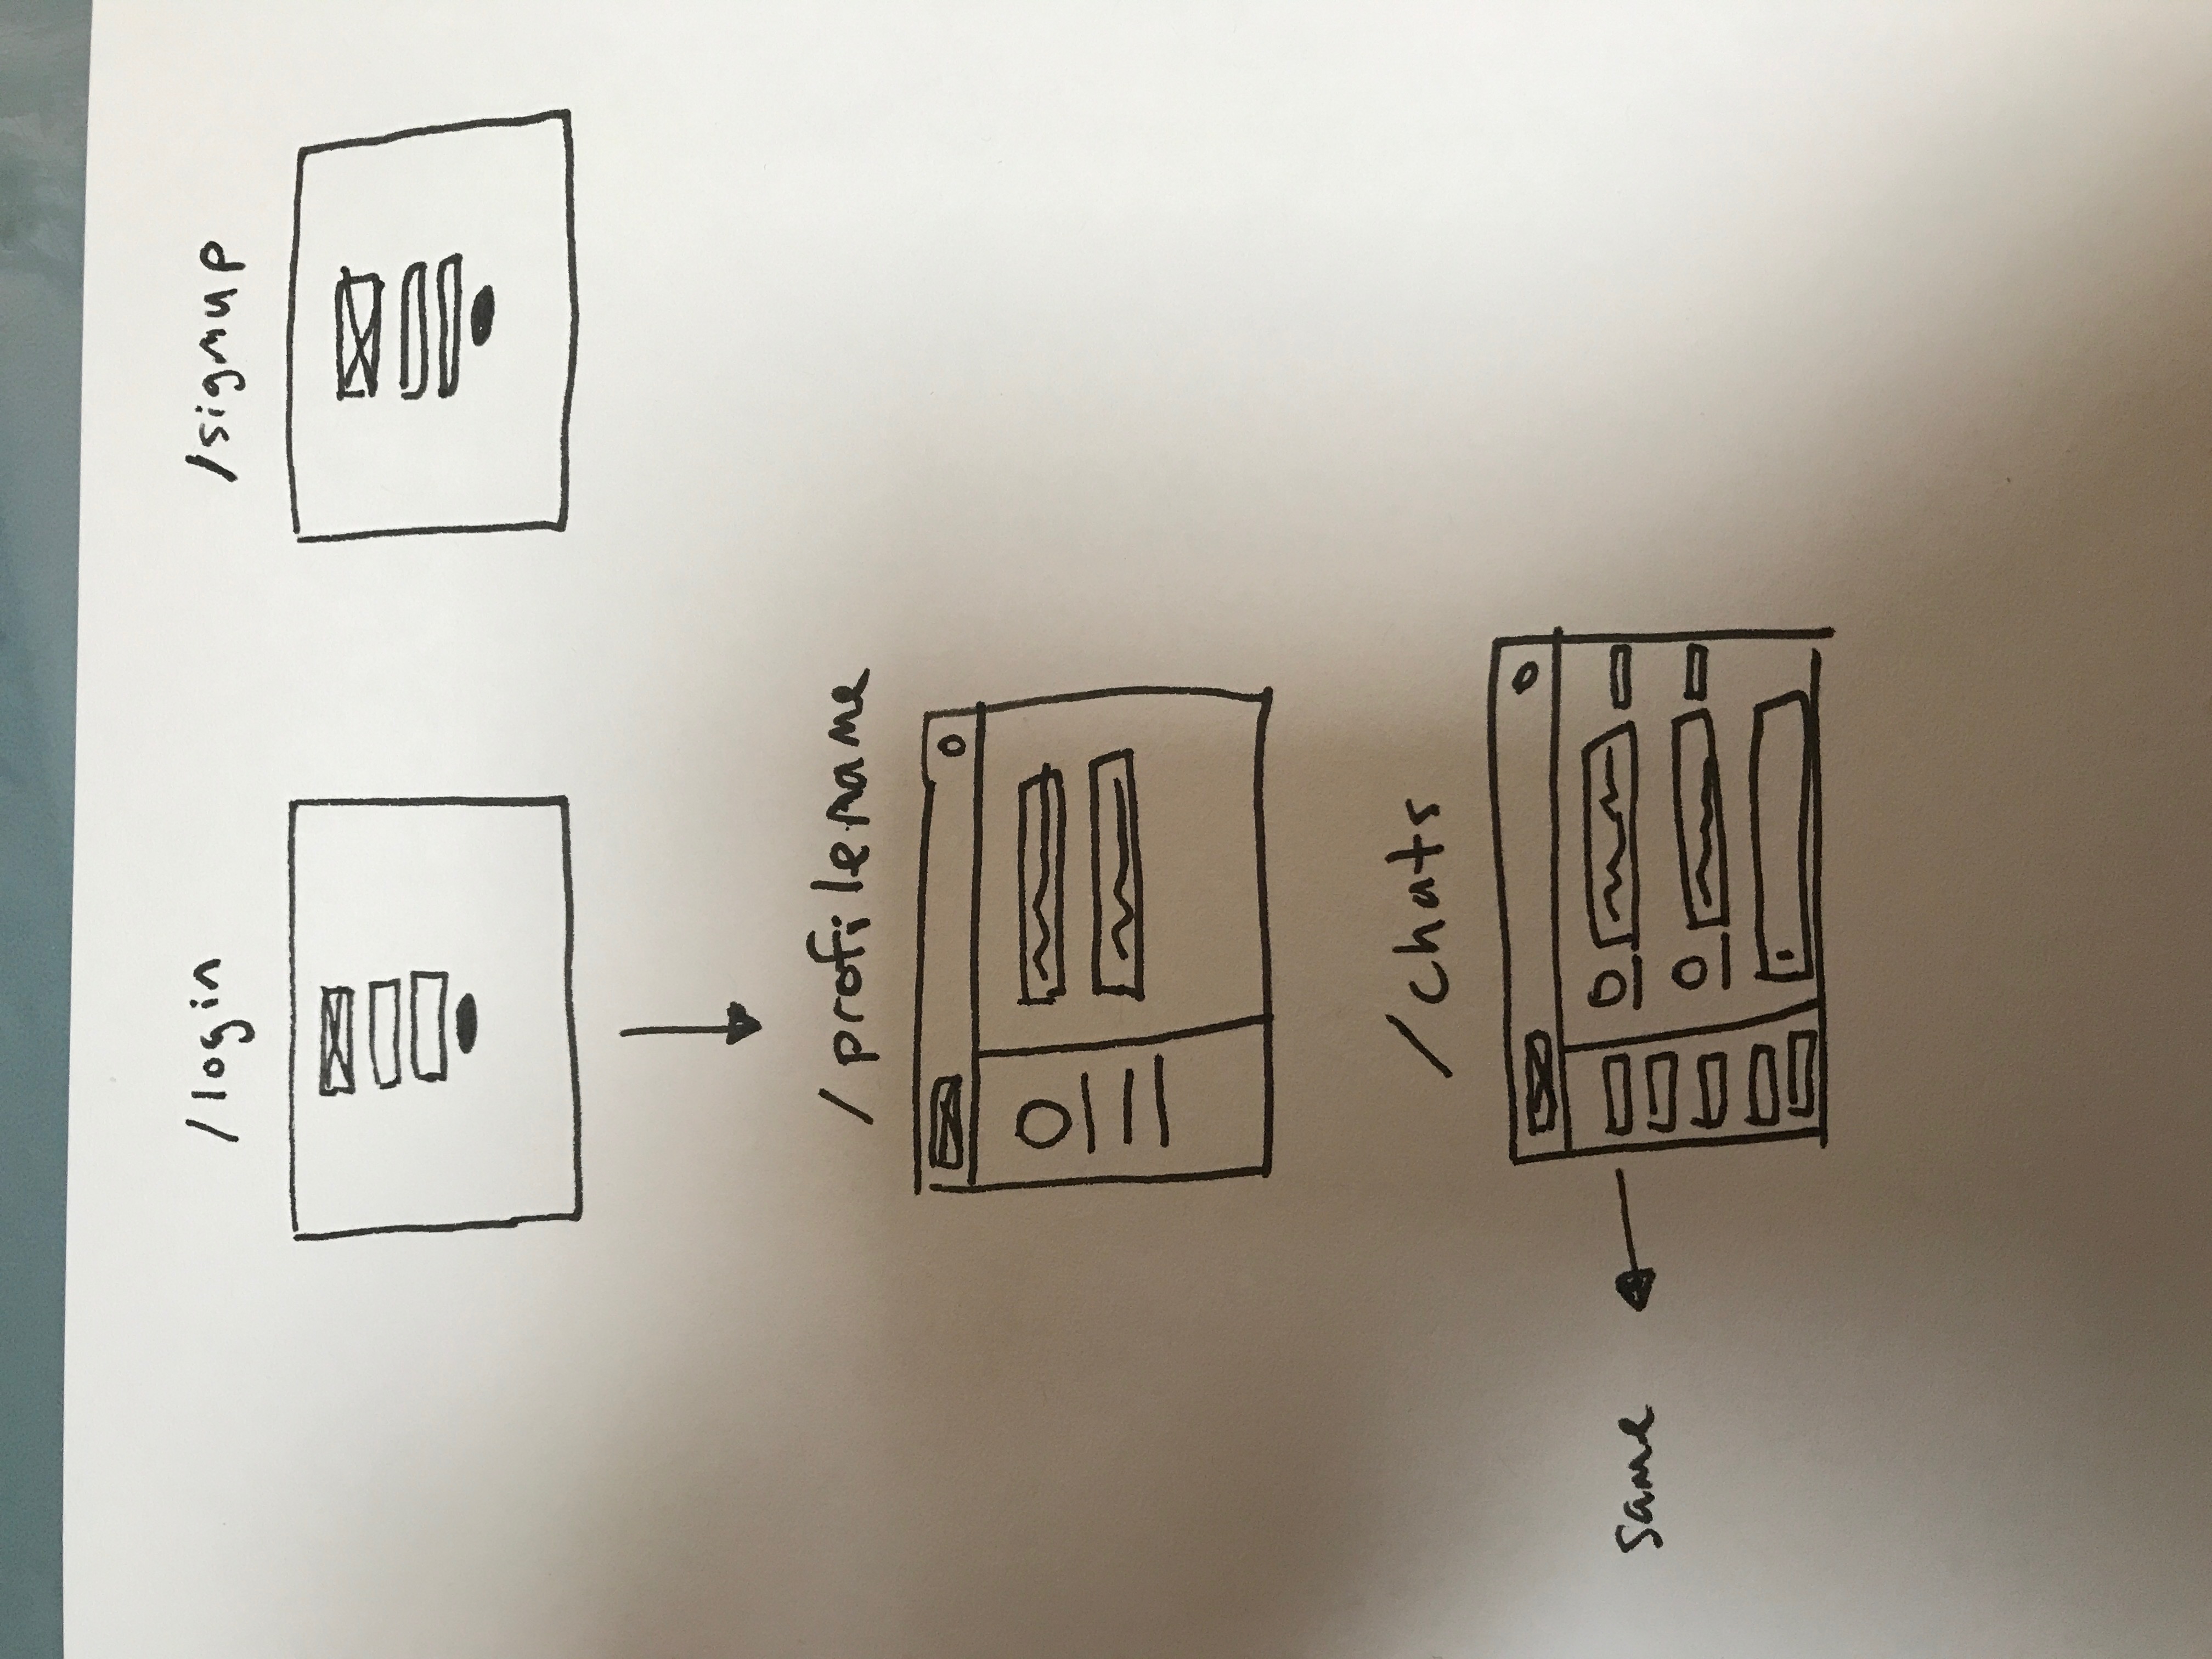 /login
/signup
/profilename
/chats
same